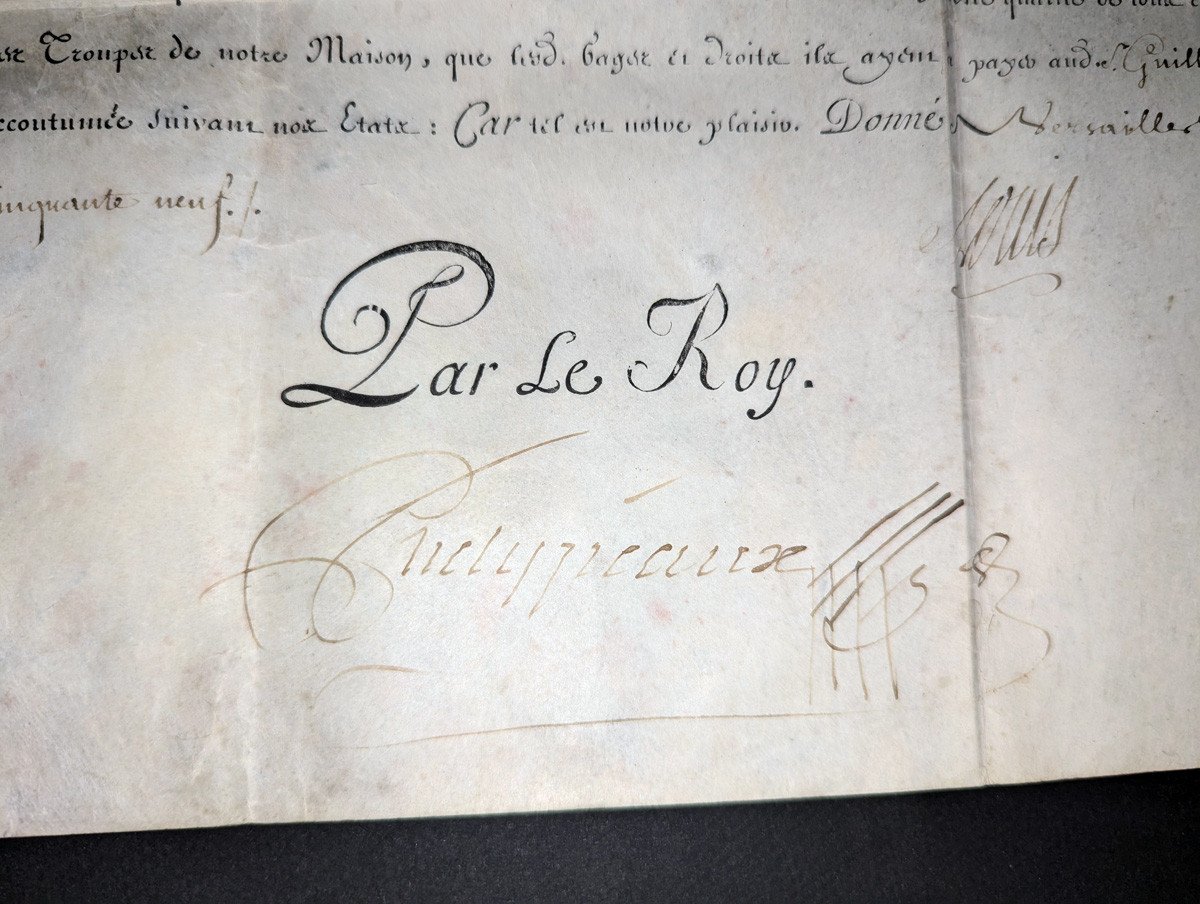 Troupes de notre Maison, que lesd. gages et droits ils ayent payes aud. S. Guill
ccoutumée suivant nos Etats: Car tel est notre plaisir. Donné Versailles
inquante neuf./.
Louis
Par Le Roy.
Phelypeaux